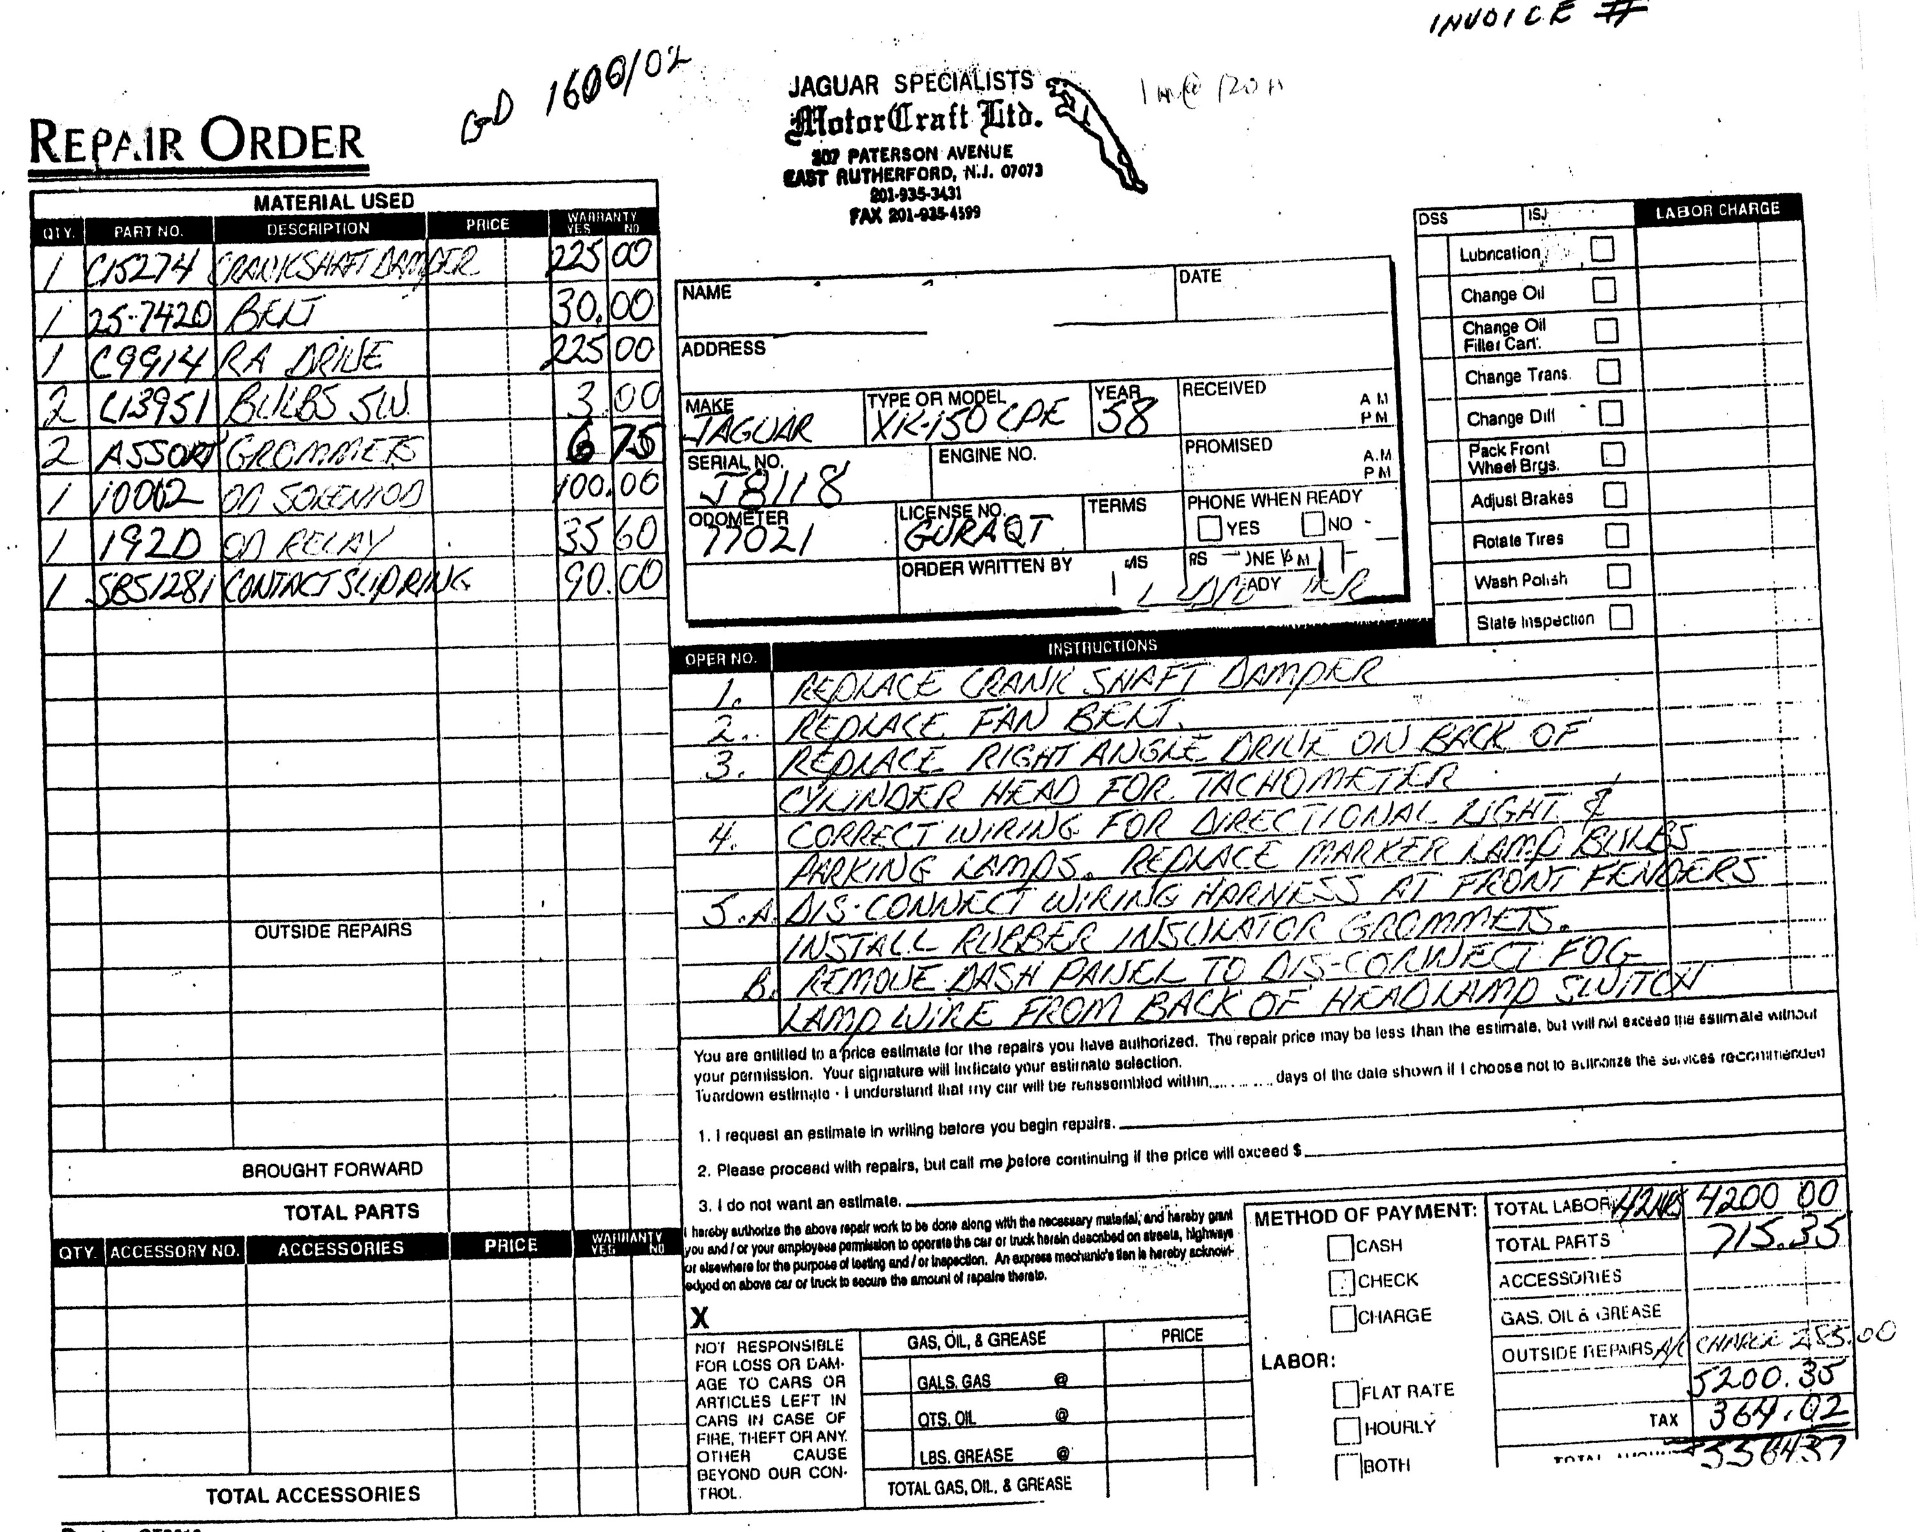 INVOICE #
1600/02
JAGUAR SPECIALISTS
MotorCraft Ltd.
207 PATERSON AVENUE
EAST RUTHERFORD, N.J. 07073
201-935-3431
FAX 201-935-4599
REPAIR ORDER
MATERIAL USED
QTY. PART NO. DESCRIPTION PRICE WARRANTY YES NO
1 C15274 CRANKSHAFT DAMPER 225 00
1 25-7420 BELT 30.00
1 C9914 RA DRIVE 225 00
2 C13951 BULBS SW. 3.00
2 ASSORT GROMMETS 6 75
1 10002 OD SOLENIOD 100.00
1 192D OD RELAY 35 60
1 SBS1281 CONTACT SLIPRING 90.00
OUTSIDE REPAIRS
BROUGHT FORWARD
TOTAL PARTS
QTY. ACCESSORY NO. ACCESSORIES PRICE WARRANTY YES NO
TOTAL ACCESSORIES
NAME DATE
ADDRESS
MAKE TYPE OR MODEL YEAR RECEIVED A M
JAGUAR XK-150 CPE 58 P M
SERIAL NO. ENGINE NO. PROMISED A.M
J8118 P M
ODOMETER LICENSE NO. TERMS PHONE WHEN READY
77021 GURAQT YES NO
ORDER WRITTEN BY
DSS ISJ LABOR CHARGE
Lubrication
Change Oil
Change Oil
Filter Cart.
Change Trans.
Change Diff
Pack Front
Wheel Brgs.
Adjust Brakes
Rotate Tires
Wash Polish
State Inspection
OPER NO. INSTRUCTIONS
1. REPLACE CRANK SHAFT DAMPER
2. REPLACE FAN BELT.
3. REPLACE RIGHT ANGLE DRIVE ON BACK OF
CYLINDER HEAD FOR TACHOMETER
4. CORRECT WIRING FOR DIRECTIONAL LIGHT &
PARKING LAMPS. REPLACE MARKER LAMP BULBS
5.A. DIS-CONNECT WIRING HARNESS AT FRONT FENDERS
INSTALL RUBBER INSULATOR GROMMETS.
B. REMOVE DASH PANEL TO DIS-CONNECT FOG
LAMP WIRE FROM BACK OF HEADLAMP SWITCH
You are entitled to a price estimate for the repairs you have authorized. The repair price may be less than the estimate, but will not exceed the estimate without
your permission. Your signature will indicate your estimate selection.
Teardown estimate - I understand that my car will be reassembled within.......... days of the date shown if I choose not to authorize the services recommended
1. I request an estimate in writing before you begin repairs.
2. Please proceed with repairs, but call me before continuing if the price will exceed $
3. I do not want an estimate.
I hereby authorize the above repair work to be done along with the necessary material, and hereby grant
you and / or your employees permission to operate the car or truck herein described on streets, highways
or elsewhere for the purpose of testing and / or inspection. An express mechanic's lien is hereby acknowl-
edged on above car or truck to secure the amount of repairs thereto.
X
NOT RESPONSIBLE
FOR LOSS OR DAM-
AGE TO CARS OR
ARTICLES LEFT IN
CARS IN CASE OF
FIRE, THEFT OR ANY
OTHER CAUSE
BEYOND OUR CON-
TROL.
GAS, OIL, & GREASE PRICE
GALS. GAS @
QTS. OIL @
LBS. GREASE @
TOTAL GAS, OIL, & GREASE
METHOD OF PAYMENT:
CASH
CHECK
CHARGE
LABOR:
FLAT RATE
HOURLY
BOTH
TOTAL LABOR 42 HRS 4200 00
TOTAL PARTS 715.35
ACCESSORIES
GAS, OIL & GREASE
OUTSIDE REPAIRS A/C CHARGE 285.00
5200.35
TAX 364.02